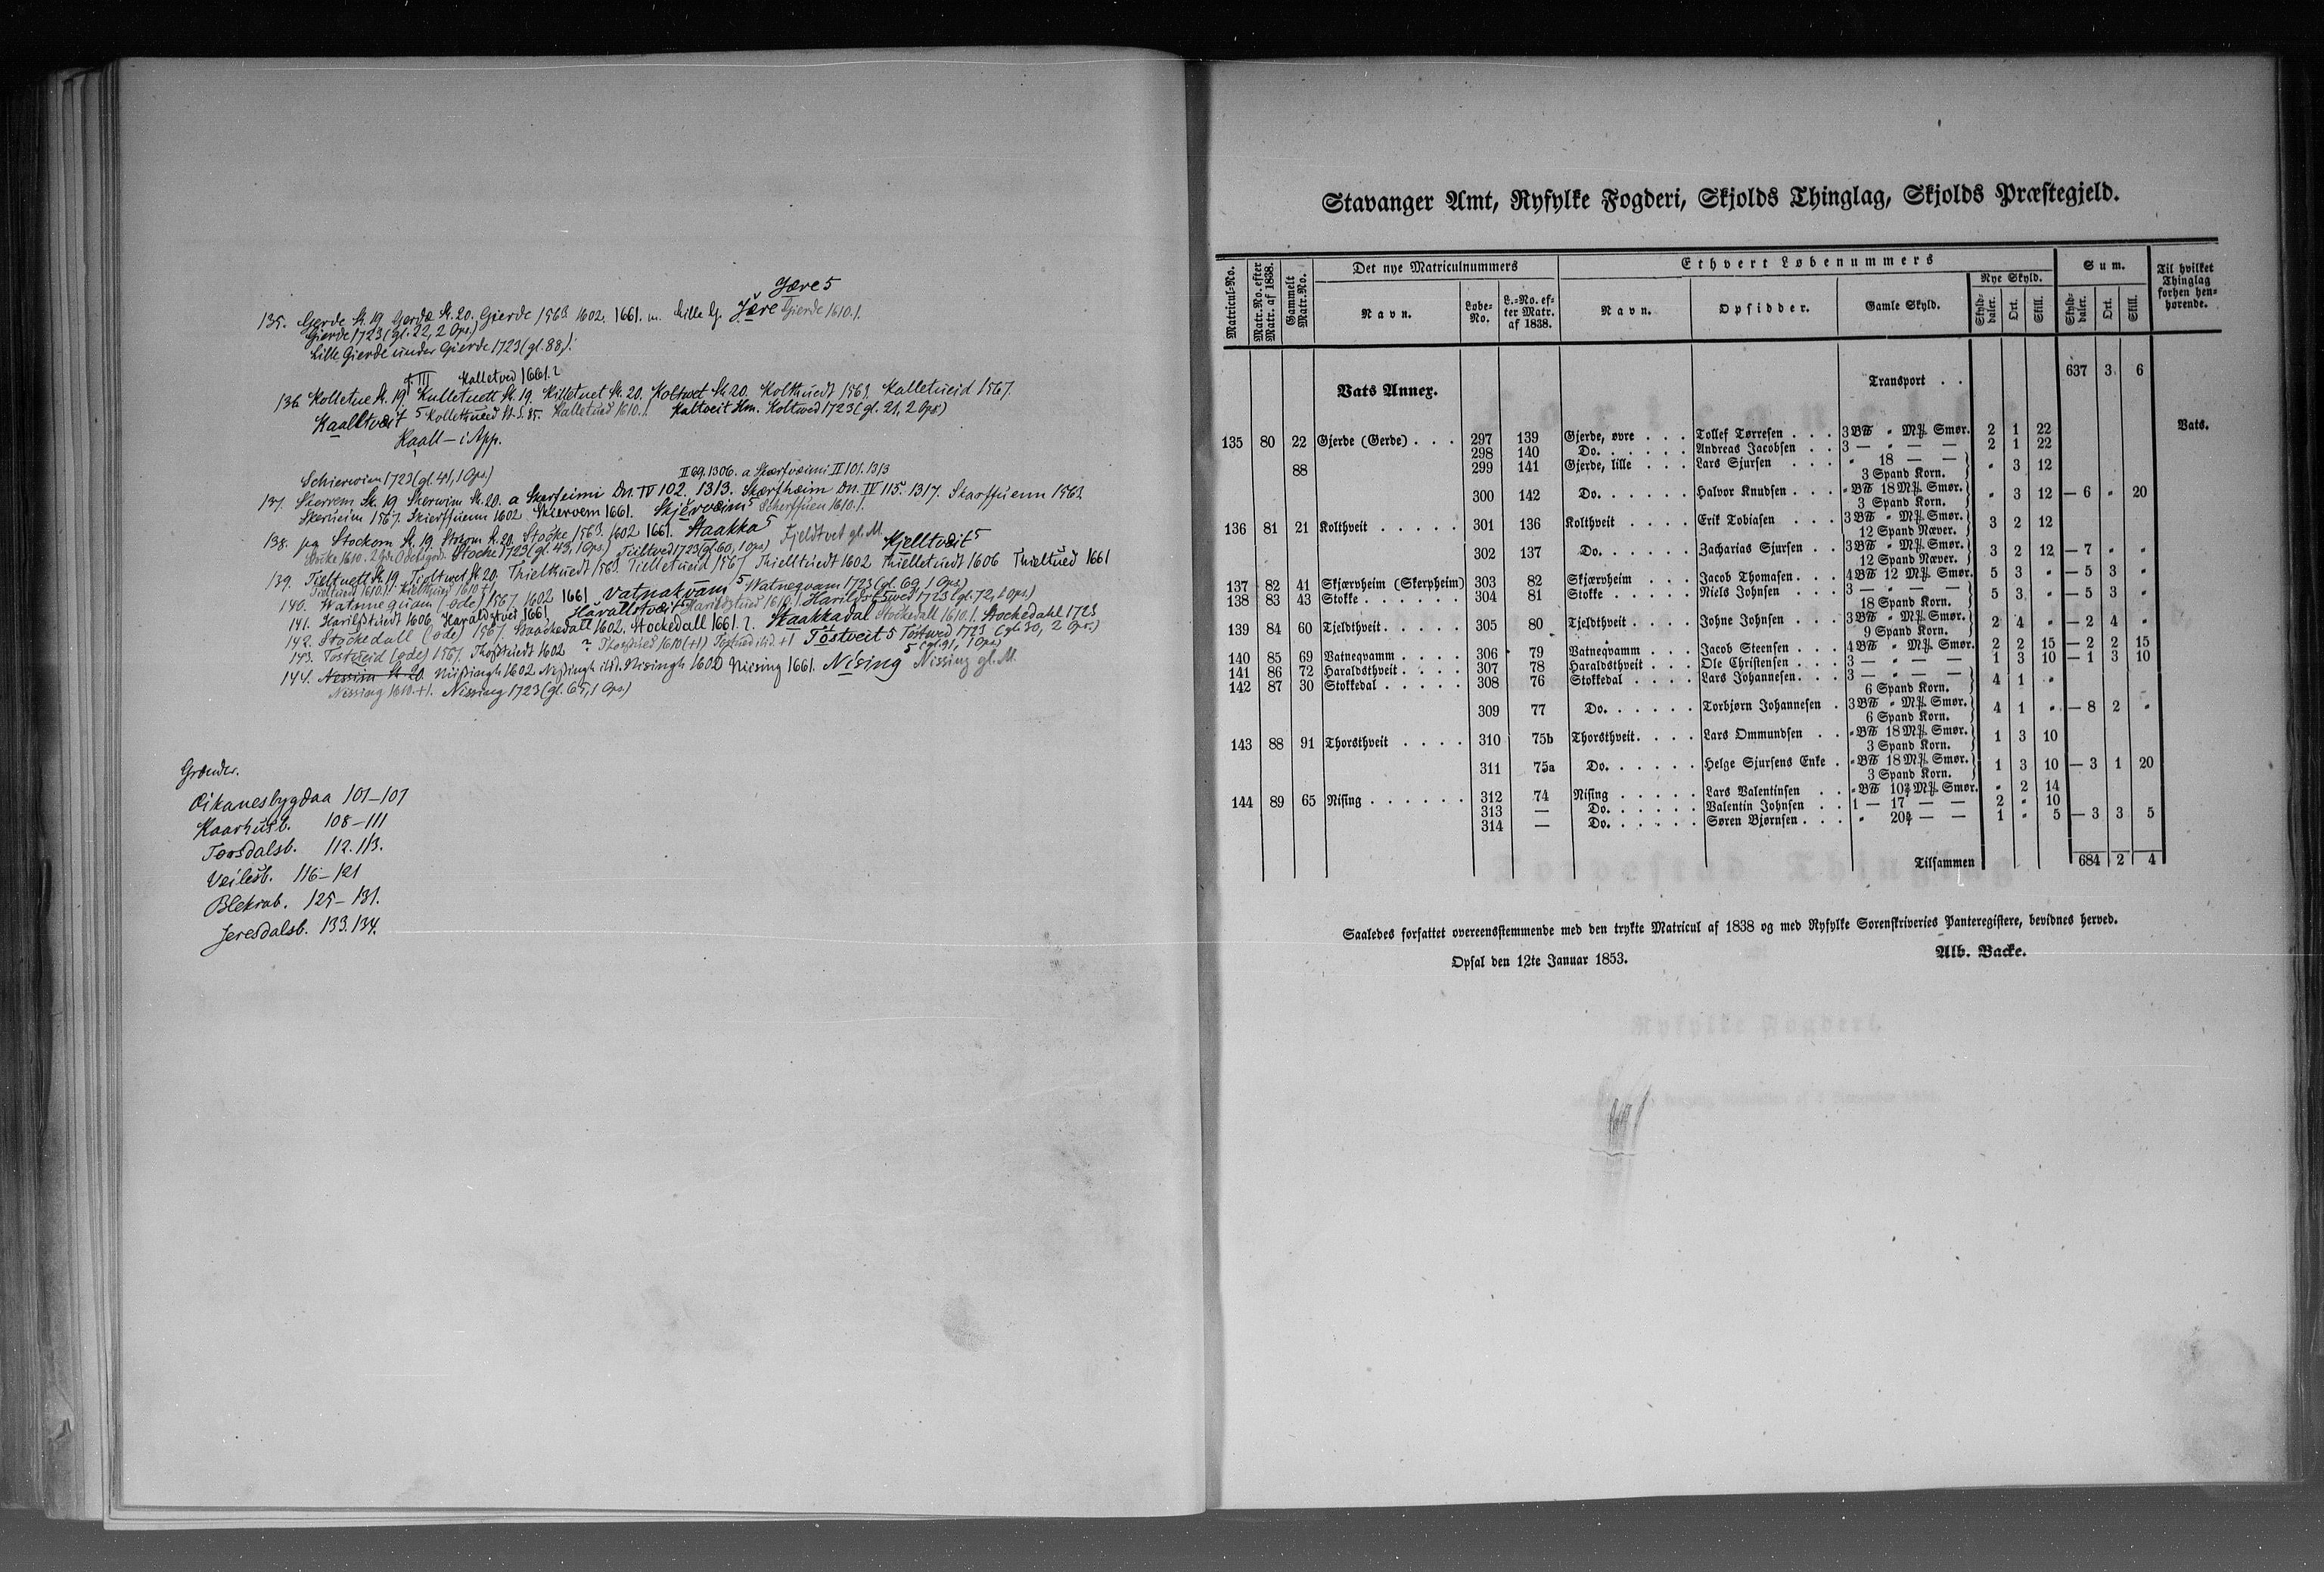 Jære 5
135. Gjerde St. 19 Gerdæ St. 20. Gierde 1563 1602. 1661. m. Lille G. Jære Gierde 1610.1.
Gierde 1723 (gl. 22, 2 Ops)
Lille Gierde under Gierde 1723 (gl. 88).
Kalletved 1661.2
136 Kolletue St. 19 Kulletuett St. 19. Killetuet St. 20. Koltwet St. 20. Kolthuedt 1563. Kalletueid 1567.
Kaalltvæit 5 Kollethueid St. S. 85. Kalletued 1610.1. Kaltveit Hm. Koltwed 1723 (gl. 21, 2 Ops)
Kaall — i App.
Schierwiem 1723 (gl. 41, 1 Ops)
II 69. 1306. a Skærfvæimi II 101. 1313
137. Skerrem St. 19 Skerwim St. 20. a Skerfeimi Dn. IV 102. 1313. Skærfhæim Dn. IV 115. 1317. Skarffuenn 1563.
Skerueim 1567. Skierffuenn 1602 Skiervem 1661. Skjérvæim 5 Scherffuen 1610.1.
138. pa Stockom St. 19 Stocom St. 20. Stocke 1563. 1602 1661. Staakka 5
Stocke 1723 (gl. 43, 1 Ops) Tieltved 1723 (gl. 60, 1 Ops) Fjeldtvet gl. M. Kjelltvæit 5
139. Tieltuett St. 19. Tieltwet St. 20. Thielthuedt 1563. Tielletueid 1567 Thielltuedt 1602 Thielletuedt 1606 Thielltued 1661
140. Watnnequam (øde) 1567 1602 1661 Vatnakvam 5 Watneqvam 1723 (gl. 69, 1 Ops)
141. Harilstuedt 1606, Haraldztvei 1661 Harallstvæit 5 Harilstued 1610.1 Harildstwed 1723 (gl. 72, 1 Ops.)
142. Stockedall (øde) 1567. Staadkedall 1602. Stockedall 1661.2. Staakkadal Stockedall 1610.1. Stockedahl 1723
(gl. 30, 2 Ops.)
143. Tostueid (øde) 1567. Thostuedt 1602 Tostveit 5 Tostwed 1723
(gl. 91, 1 Ops)
144. Nessim St. 20. Niissingh 1602 Nissingh ibd. Nisingh 1600 Niesing 1661. Nísing 5 Nissing gl. M.
Nissing 1610.+1. Nissing 1723 (gl. 65, 1 Ops)
Grænder.
Øikanesbygdaa 101–107
Kaarhusb. 108–111
Torsdalsb. 112. 113.
Veilesb. 116–121
Blekrab. 125–131.
Jeresdalsb. 133. 134.
Stavanger Amt, Ryfylke Fogderi, Skjolds Thinglag, Skjolds Præstegjeld.
Matricul-No. Matr.No. efter Matr. af 1838. Gammelt Matr.No. Det nye Matriculnummers Navn. Løbe-No. L.-No. efter Matr. af 1838. Ethvert Løbenummers Navn. Opsidder. Gamle Skyld. Nye Skyld. Skylddaler. Ort. Skill. Sum. Skylddaler. Ort. Skill. Til hvilket Thinglag forhen henhørende.
Vats Annex. Transport . . 637 3 6
135 80 22 Gjerde (Gerde) . . . 297 139 Gjerde, øvre . . . Tollef Tørresen . . . 3 B℔ " M℔ Smør. 2 1 22 Vats.
298 140 Do. . . . . . Andreas Jacobsen . . 3 — " — — 2 1 22
88 299 141 Gjerde, lille . . . Lars Sjursen . . . " 18 — — 3 Spand Korn. " 3 12
300 142 Do. . . . . . Halvor Knudsen . . . " B℔ 18 M℔ Smør. 3 Spand Korn. " 3 12 — 6 " 20
136 81 21 Kolthveit . . . . . 301 136 Kolthveit . . . . Erik Tobiasen . . . 3 B℔ " M℔ Smør. 12 Spand Næver. 3 2 12
302 137 Do. . . . . . Zacharias Sjursen . . 3 B℔ " M℔ Smør. 12 Spand Næver. 3 2 12 — 7 " "
137 82 41 Skjærvheim (Skerpheim) 303 82 Skjærvheim . . . Jacob Thomasen . . . 4 B℔ 12 M℔ Smør. 5 3 " — 5 3 "
138 83 43 Stokke . . . . . . 304 81 Stokke . . . . . Niels Johnsen . . . 3 — " — — 18 Spand Korn. 5 3 " — 5 3 "
139 84 60 Tjeldthveit . . . . . 305 80 Tjeldthveit . . . . Johne Johnsen . . . 3 B℔ " M℔ Smør. 9 Spand Korn. 2 4 " — 2 4 "
140 85 69 Vatneqvamm . . . . 306 79 Vatneqvamm . . . Jacob Steensen . . . 4 B℔ " M℔ Smør. 2 2 15 — 2 2 15
141 86 72 Haraldsthveit . . . . 307 78 Haraldsthveit . . . Ole Christensen . . . 3 — " — — 1 3 10 — 1 3 10
142 87 30 Stokkedal . . . . . 308 76 Stokkedal . . . . Lars Johannesen . . . 3 — " — — 6 Spand Korn. 4 1 "
309 77 Do. . . . . . Torbjørn Johannesen . 3 B℔ " M℔ Smør. 6 Spand Korn. 4 1 " — 8 2 "
143 88 91 Thorsthveit . . . . 310 75b Thorsthveit . . . . Lars Ommundsen . . " B℔ 18 M℔ Smør. 3 Spand Korn. 1 3 10
311 75a Do. . . . . . Helge Sjursens Enke . " B℔ 18 M℔ Smør. 3 Spand Korn. 1 3 10 — 3 1 20
144 89 65 Nising . . . . . . 312 74 Nising . . . . . Lars Valentinsen . . " B℔ 10 2/7 M℔ Smør. " 2 14
313 — Do. . . . . . Valentin Johnsen . . 1 — 17 — — 2 " 10
314 — Do. . . . . . Søren Bjørnsen . . . " 20 4/7 — — 1 " 5 — 3 3 5
Tilsammen 684 2 4
Saaledes forfattet overeensstemmende med den trykte Matricul af 1838 og med Ryfylke Sorenskriveries Panteregistere, bevidnes herved.
Opsal den 12te Januar 1853.
Alb. Backe.